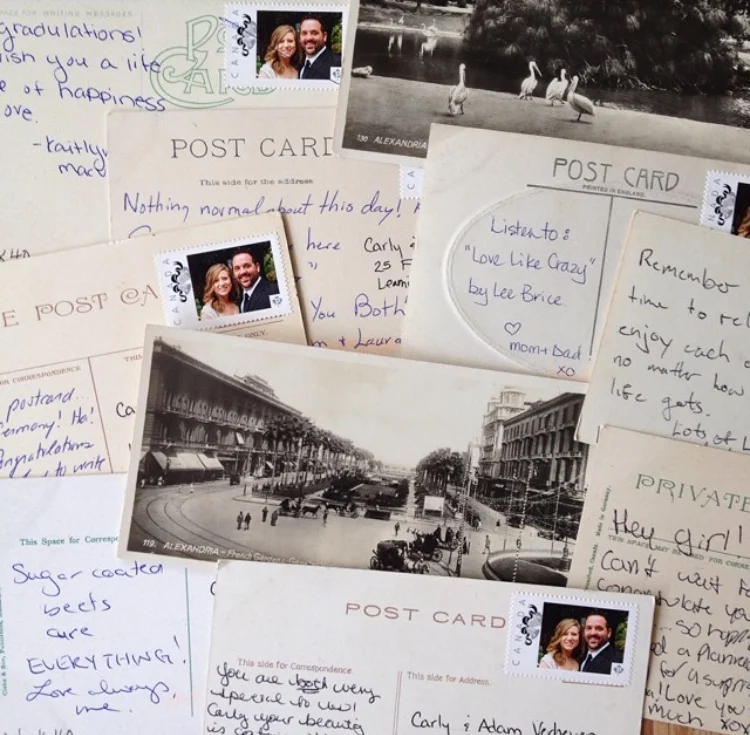 SPACE FOR WRITING MESSAGES
gradulations!
wish you a life
e of happiness
ove.
-Kaitlyn
CANADA
130 ALEXANDRIA
POST CARD
This side for the address
Nothing normal about this day!
here
Carly
25 F
You Both
+ Laura
POST CARD
PRINTED IN ENGLAND.
Listen to:
"Love Like Crazy"
by Lee Brice
♡
mom + Dad
xo
Remember
time to
enjoy each
no matter how
life gets.
Lots of
CANADA
E POST CA
ONLY.
FOR CORRESPONDENCE
THIS
postcard...
Germany! Ha!
ongratulations
to write
Ca
119. ALEXANDRIA - French Gardens
This Space for Correspo
Sugar coated
beets
cure
EVERYTHING!
Love always,
me.
PRIVATE
Hey girl!
Can't wait
congratulate you
so happ
a planne
for a surpri
Love you
much xox
POST CARD
CANADA
This side for Correspondence.
This side for Address.
you are both very
special to us!
Carly your beauty
is
Carly & Adam